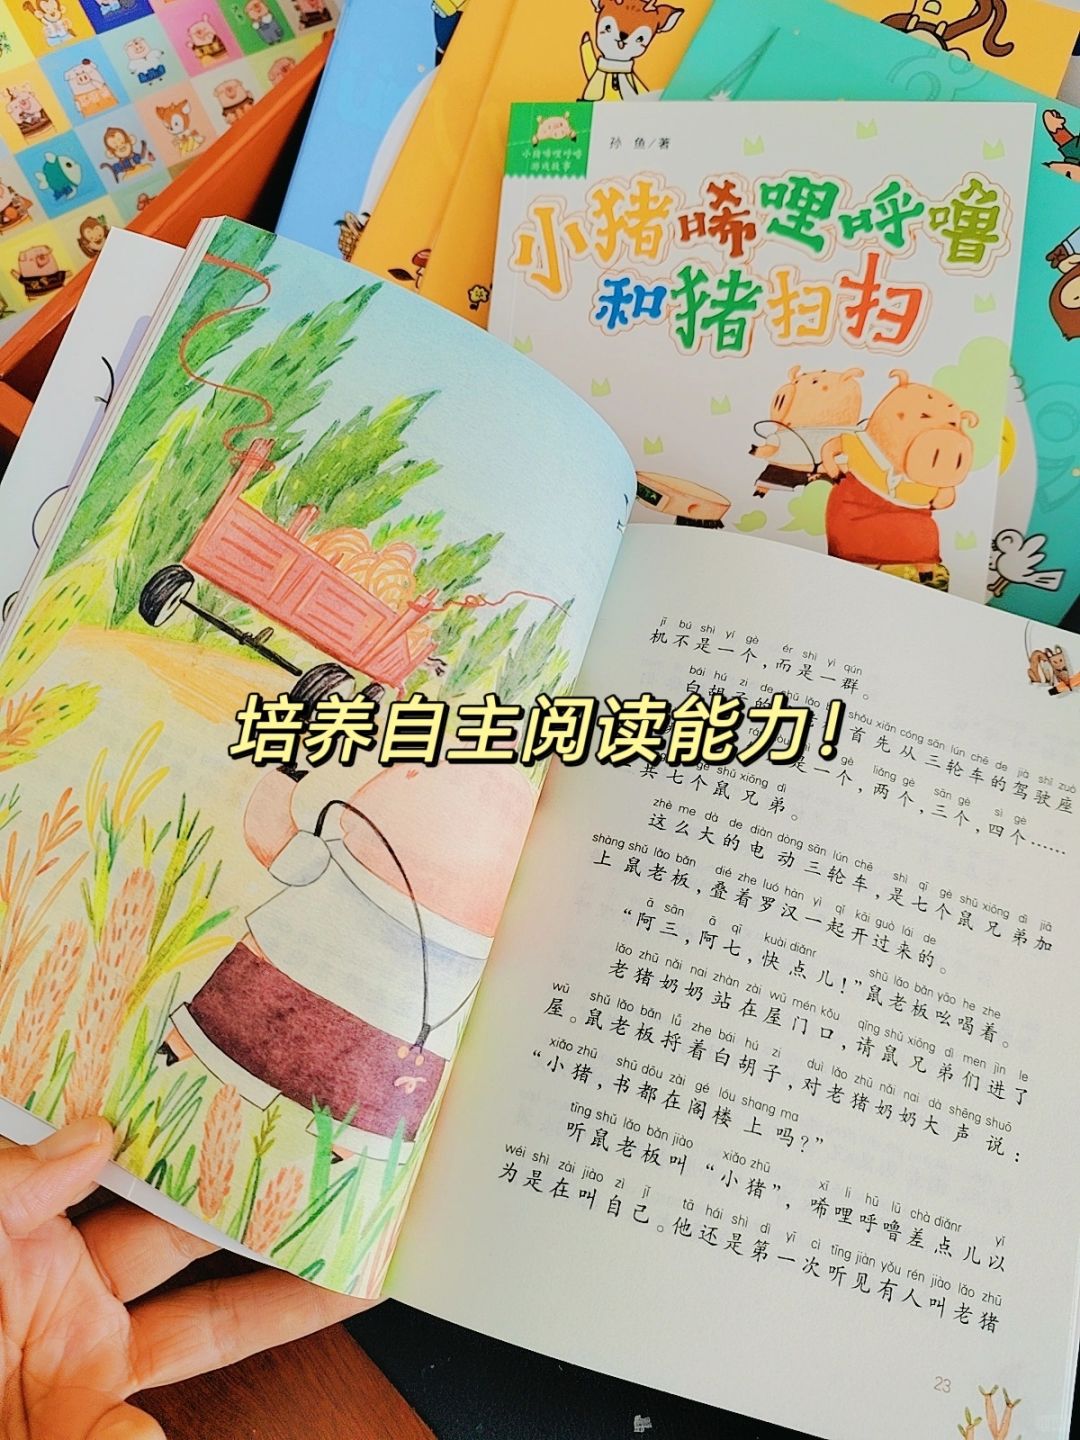 孙 鱼/著
小猪唏哩呼噜
游戏故事
小猪唏哩呼噜
和猪扫扫
培养自主阅读能力！
jī bú shì yí gè ér shì yì qún
机不是一个，而是一群。
bái hú zi de shǔ lǎo bǎn shǒu xiān cóng sān lún chē de jià shǐ zuò
白胡子的 首先从三轮车的驾驶座
gè liǎng gè sān gè sì gè
是一个，两个，三个，四个……
gè shǔ xiōng dì
共七个鼠兄弟。
zhè me dà de diàn dòng sān lún chē shì qī gè shǔ xiōng dì jiā
这么大的电动三轮车，是七个鼠兄弟加
shàng shǔ lǎo bǎn dié zhe luó hàn yì qǐ kāi guò lái de
上鼠老板，叠着罗汉一起开过来的。
ā sān ā qī kuài diǎnr shǔ lǎo bǎn yāo he zhe
“阿三，阿七，快点儿！”鼠老板吆喝着。
lǎo zhū nǎi nai zhàn zài wū mén kǒu qǐng shǔ xiōng dì men jìn le
老猪奶奶站在屋门口，请鼠兄弟们进了
wū shǔ lǎo bǎn lǚ zhe bái hú zi duì lǎo zhū nǎi nai dà shēng shuō
屋。鼠老板捋着白胡子，对老猪奶奶大声说：
xiǎo zhū shū dōu zài gé lóu shang ma
“小猪，书都在阁楼上吗？”
tīng shǔ lǎo bǎn jiào xiǎo zhū xī li hū lū chà diǎnr yǐ
听鼠老板叫“小猪”，唏哩呼噜差点儿以
wéi shì zài jiào zì jǐ tā hái shì dì yī cì tīng jiàn yǒu rén jiào lǎo zhū
为是在叫自己。他还是第一次听见有人叫老猪
23